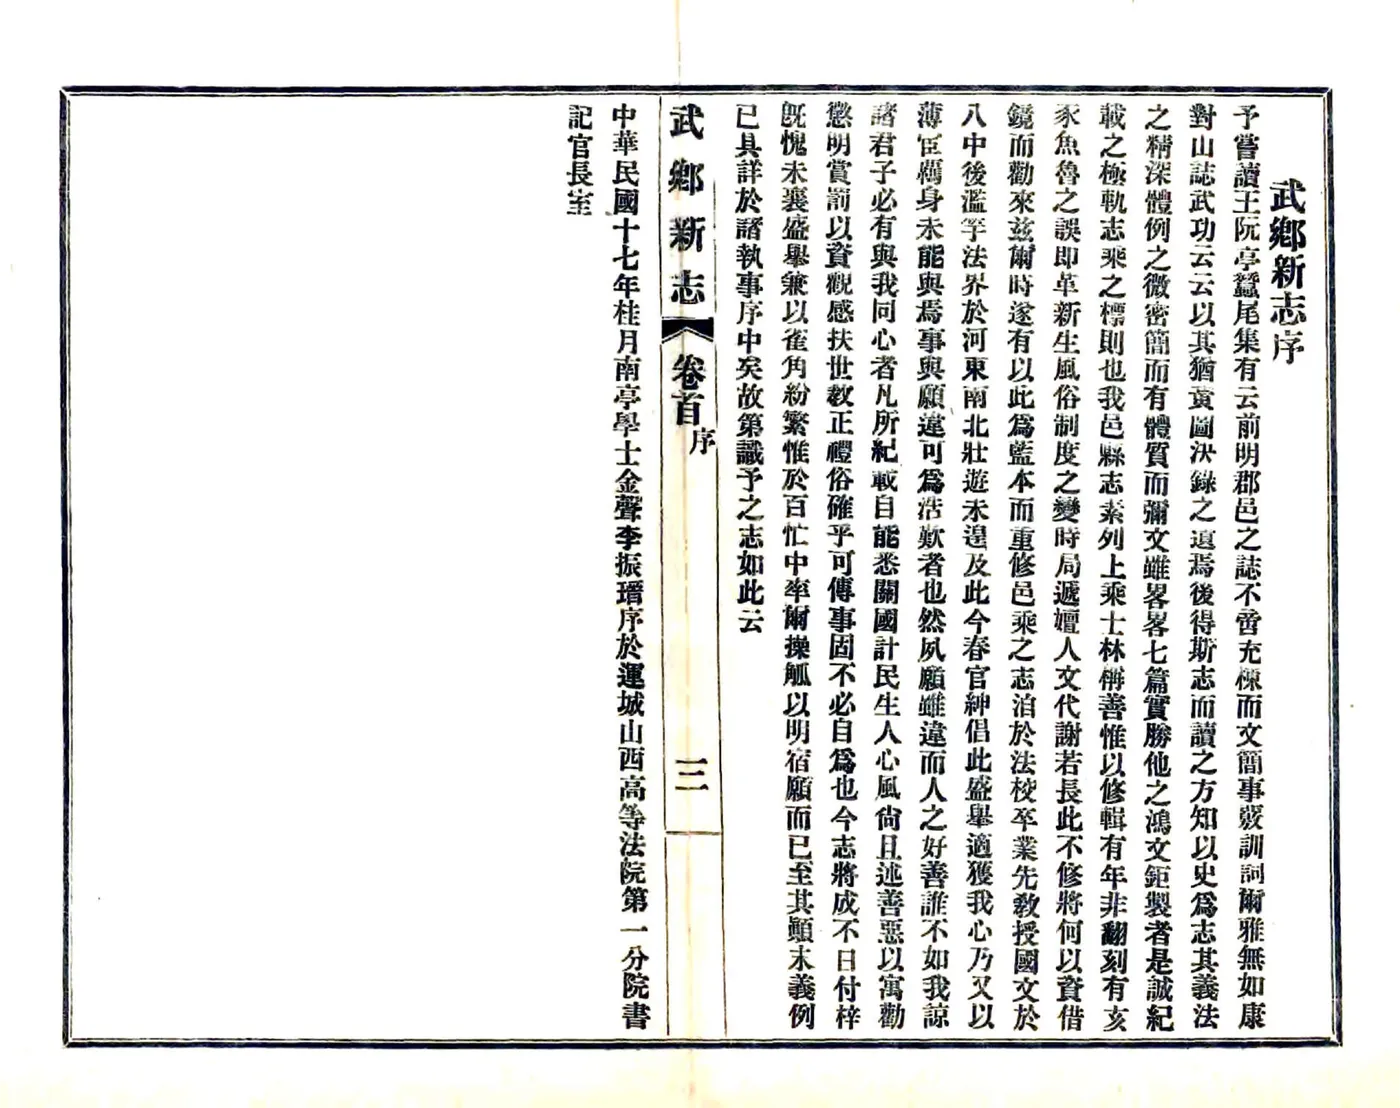 武鄉新志序
予嘗讀王阮亭蠶尾集有云前明郡邑之誌不啻充棟而文簡事覈訓詞爾雅無如康
對山誌武功云云以其猶黃圖決錄之遺焉後得斯志而讀之方知以史爲志其義法
之精深體例之微密簡而有體質而彌文雖畧畧七篇實勝他之鴻文鉅製者是誠紀
載之極軌志乘之標則也我邑縣志素列上乘士林稱善惟以修輯有年非翻刻有亥
豕魚魯之誤即革新生風俗制度之變時局遞嬗人文代謝若長此不修將何以資借
鏡而勸來茲爾時遂有以此爲藍本而重修邑乘之志洎於法校卒業先教授國文於
八中後濫竽法界於河東南北壯遊未遑及此今春官紳倡此盛舉適獲我心乃又以
薄宦羈身未能與焉事與願違可爲浩歎者也然夙願雖違而人之好善誰不如我諒
諸君子必有與我同心者凡所紀載自能悉關國計民生人心風尙且述善惡以寓勸
懲明賞罰以資觀感扶世教正禮俗確乎可傳事固不必自爲也今志將成不日付梓
旣愧未襄盛舉兼以雀角紛繁惟於百忙中率爾操觚以明宿願而已至其顚末義例
已具詳於諸執事序中矣故第識予之志如此云
武鄉新志
卷首
序
三
中華民國十七年桂月南亭學士金聲李振瑨序於運城山西高等法院第一分院書
記官長室